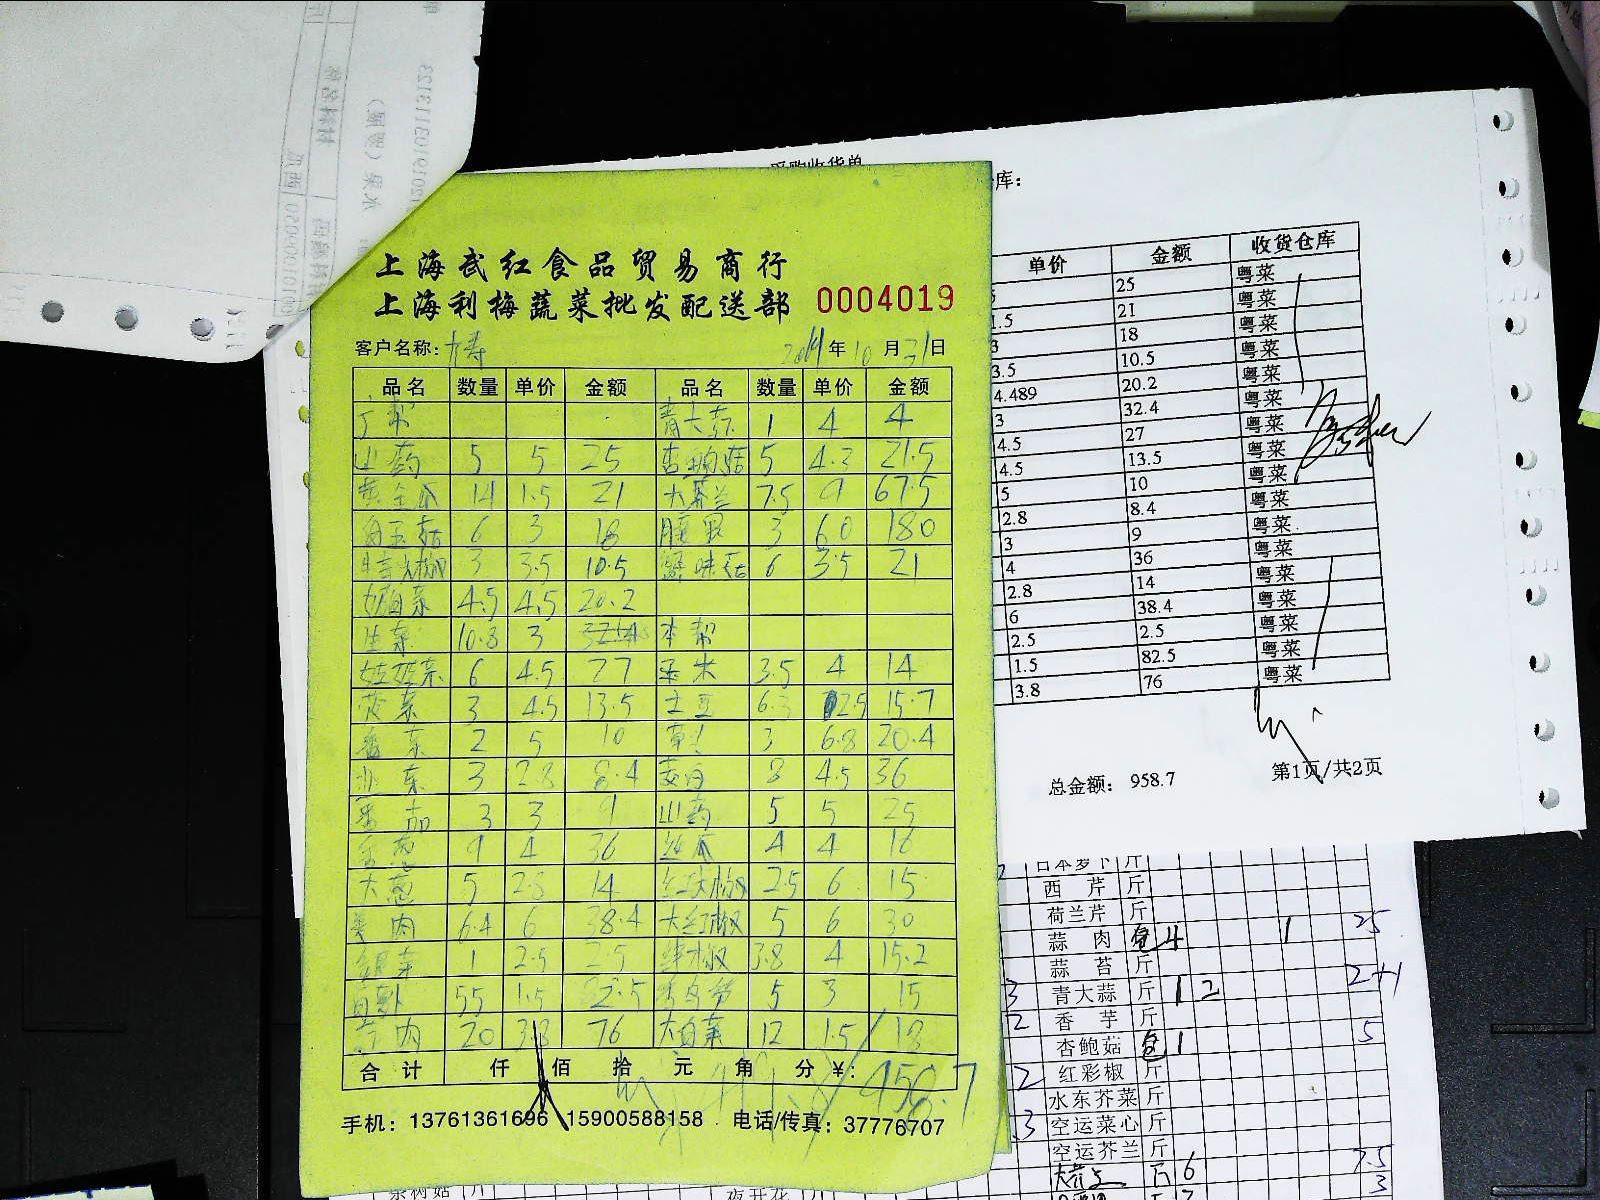 上海武红食品贸易商行
上海利梅蔬菜批发配送部 0004019
客户名称: 2014年10月31日
品名 数量 单价 金额 品名 数量 单价 金额
广 青大蒜 1 4 4
山药 5 5 25 杏鲍菇 5 4.3 21.5
黄金瓜 14 1.5 21 大芥兰 7.5 9 67.5
白玉菇 6 3 18 腰果 3 60 180
青尖椒 3 3.5 10.5 蟹味菇 6 3.5 21
奶白菜 4.5 4.5 20.2
生菜 10.8 3 本帮
娃娃菜 6 4.5 27 玉米 3.5 4 14
菠菜 3 4.5 13.5 土豆 6.3 2.5 15.7
香菜 2 5 10 草头 3 6.8 20.4
3 2.8 8.4 茭白 8 4.5 36
番茄 3 3 9 山药 5 5 25
9 4 36 丝瓜 4 4 16
大葱 5 2.8 14 红尖椒 2.5 6 15
姜肉 6.4 6 38.4 大红椒 5 6 30
1 2.5 2.5 3.8 4 15.2
白萝卜 55 1.5 82.5 5 3 15
芋肉 20 3.8 76 大白菜 12 1.5 18
合计 仟 佰 拾 元 角 分 ¥: 958.7
手机: 13761361696 15900588158 电话/传真: 37776707
采购收货单
库:
单价 金额 收货仓库
25 粤菜
1.5 21 粤菜
3 18 粤菜
3.5 10.5 粤菜
4.489 20.2 粤菜
3 32.4 粤菜
4.5 27 粤菜
4.5 13.5 粤菜
5 10 粤菜
2.8 8.4 粤菜
3 9 粤菜
4 36 粤菜
2.8 14 粤菜
6 38.4 粤菜
2.5 2.5 粤菜
1.5 82.5 粤菜
3.8 76 粤菜
总金额: 958.7 第1页/共2页
日本萝卜 斤
西芹 斤
荷兰芹 斤
蒜肉 4 1 25
蒜苔 斤
3 青大蒜 斤 1 2 2+1
2 香芋 斤
杏鲍菇 包 1 5
2 红彩椒 斤
水东芥菜 斤
3 空运菜心 斤
空运芥兰 斤
斤 6 7.5
3
茶树菇 斤 夜开花